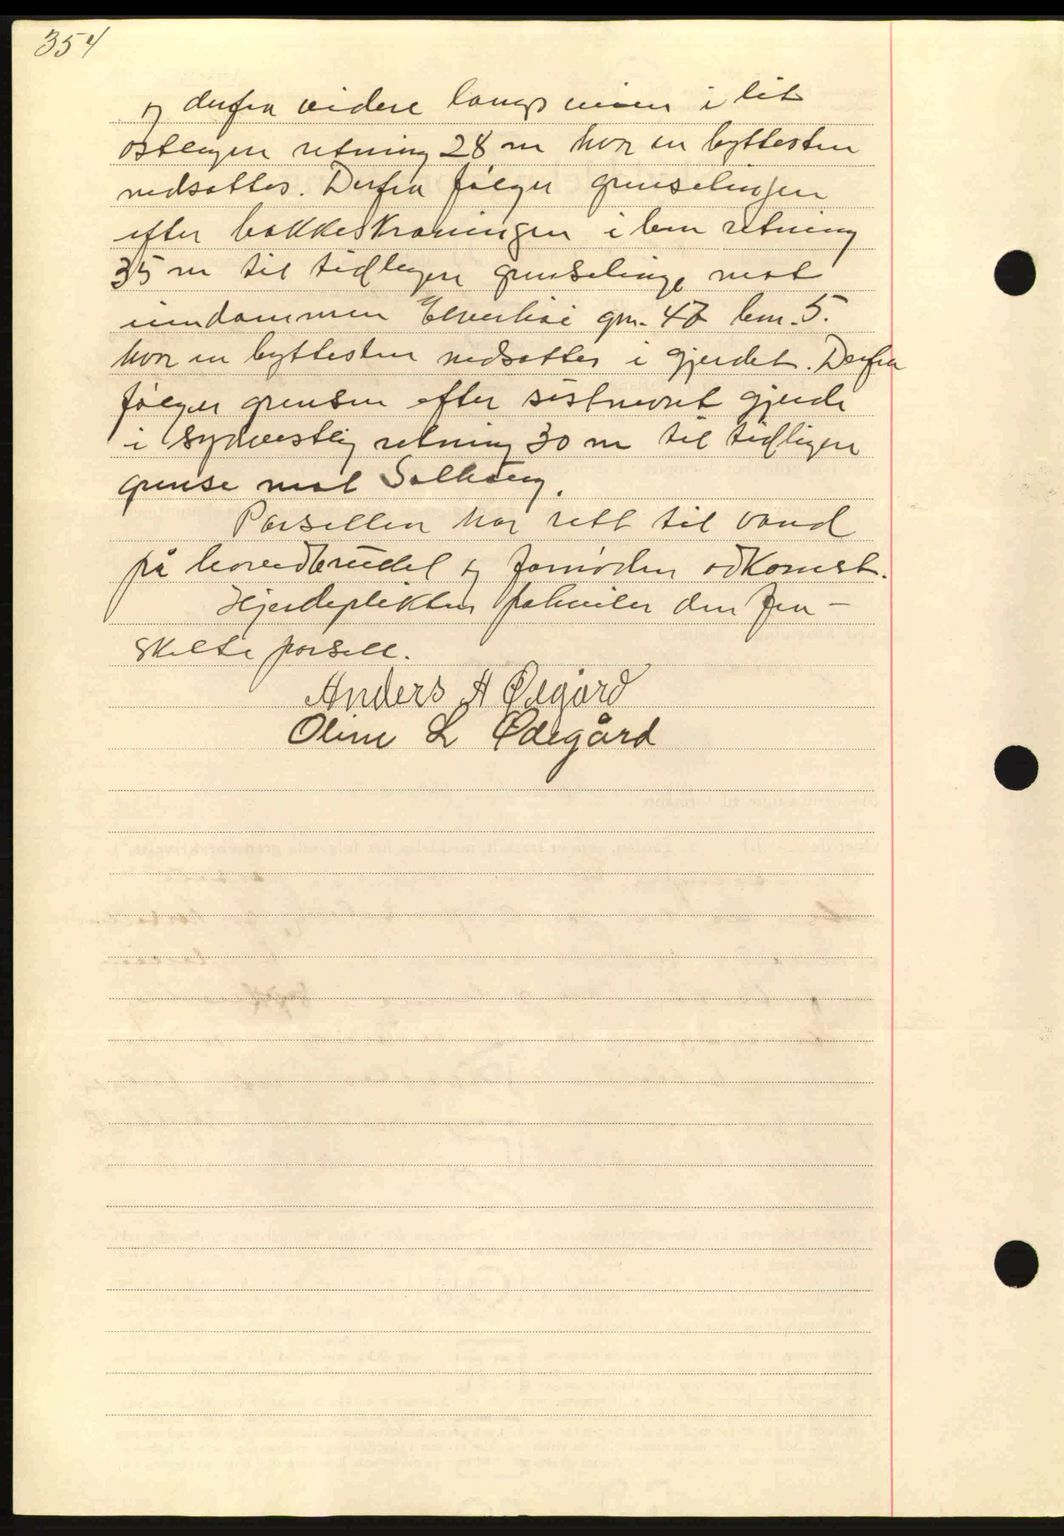 354
og derfra videre langs veien i litt
østlegere retning 28 m hvor en byttesten
nedsattes. Derfra følger grenselinjen
efter bakkeskråningen i lem retning
35 m til tidligere grenselinje mot
eiendommen Elverhøi gnr. 47 bnr. 5.
hvor en byttesten nedsattes i gjerdet. Derfra
følger grensen efter sistnevnt gjerde
i sydvestlig retning 30 m til tidligere
grense mot Solhaug.
Parsellen har rett til vand
på hovedbruket og fornøden adkomst.
Gjerdeplikten påhviler den fra-
skilte parsell.
Anders A Ødegård
Oline L Ødegård